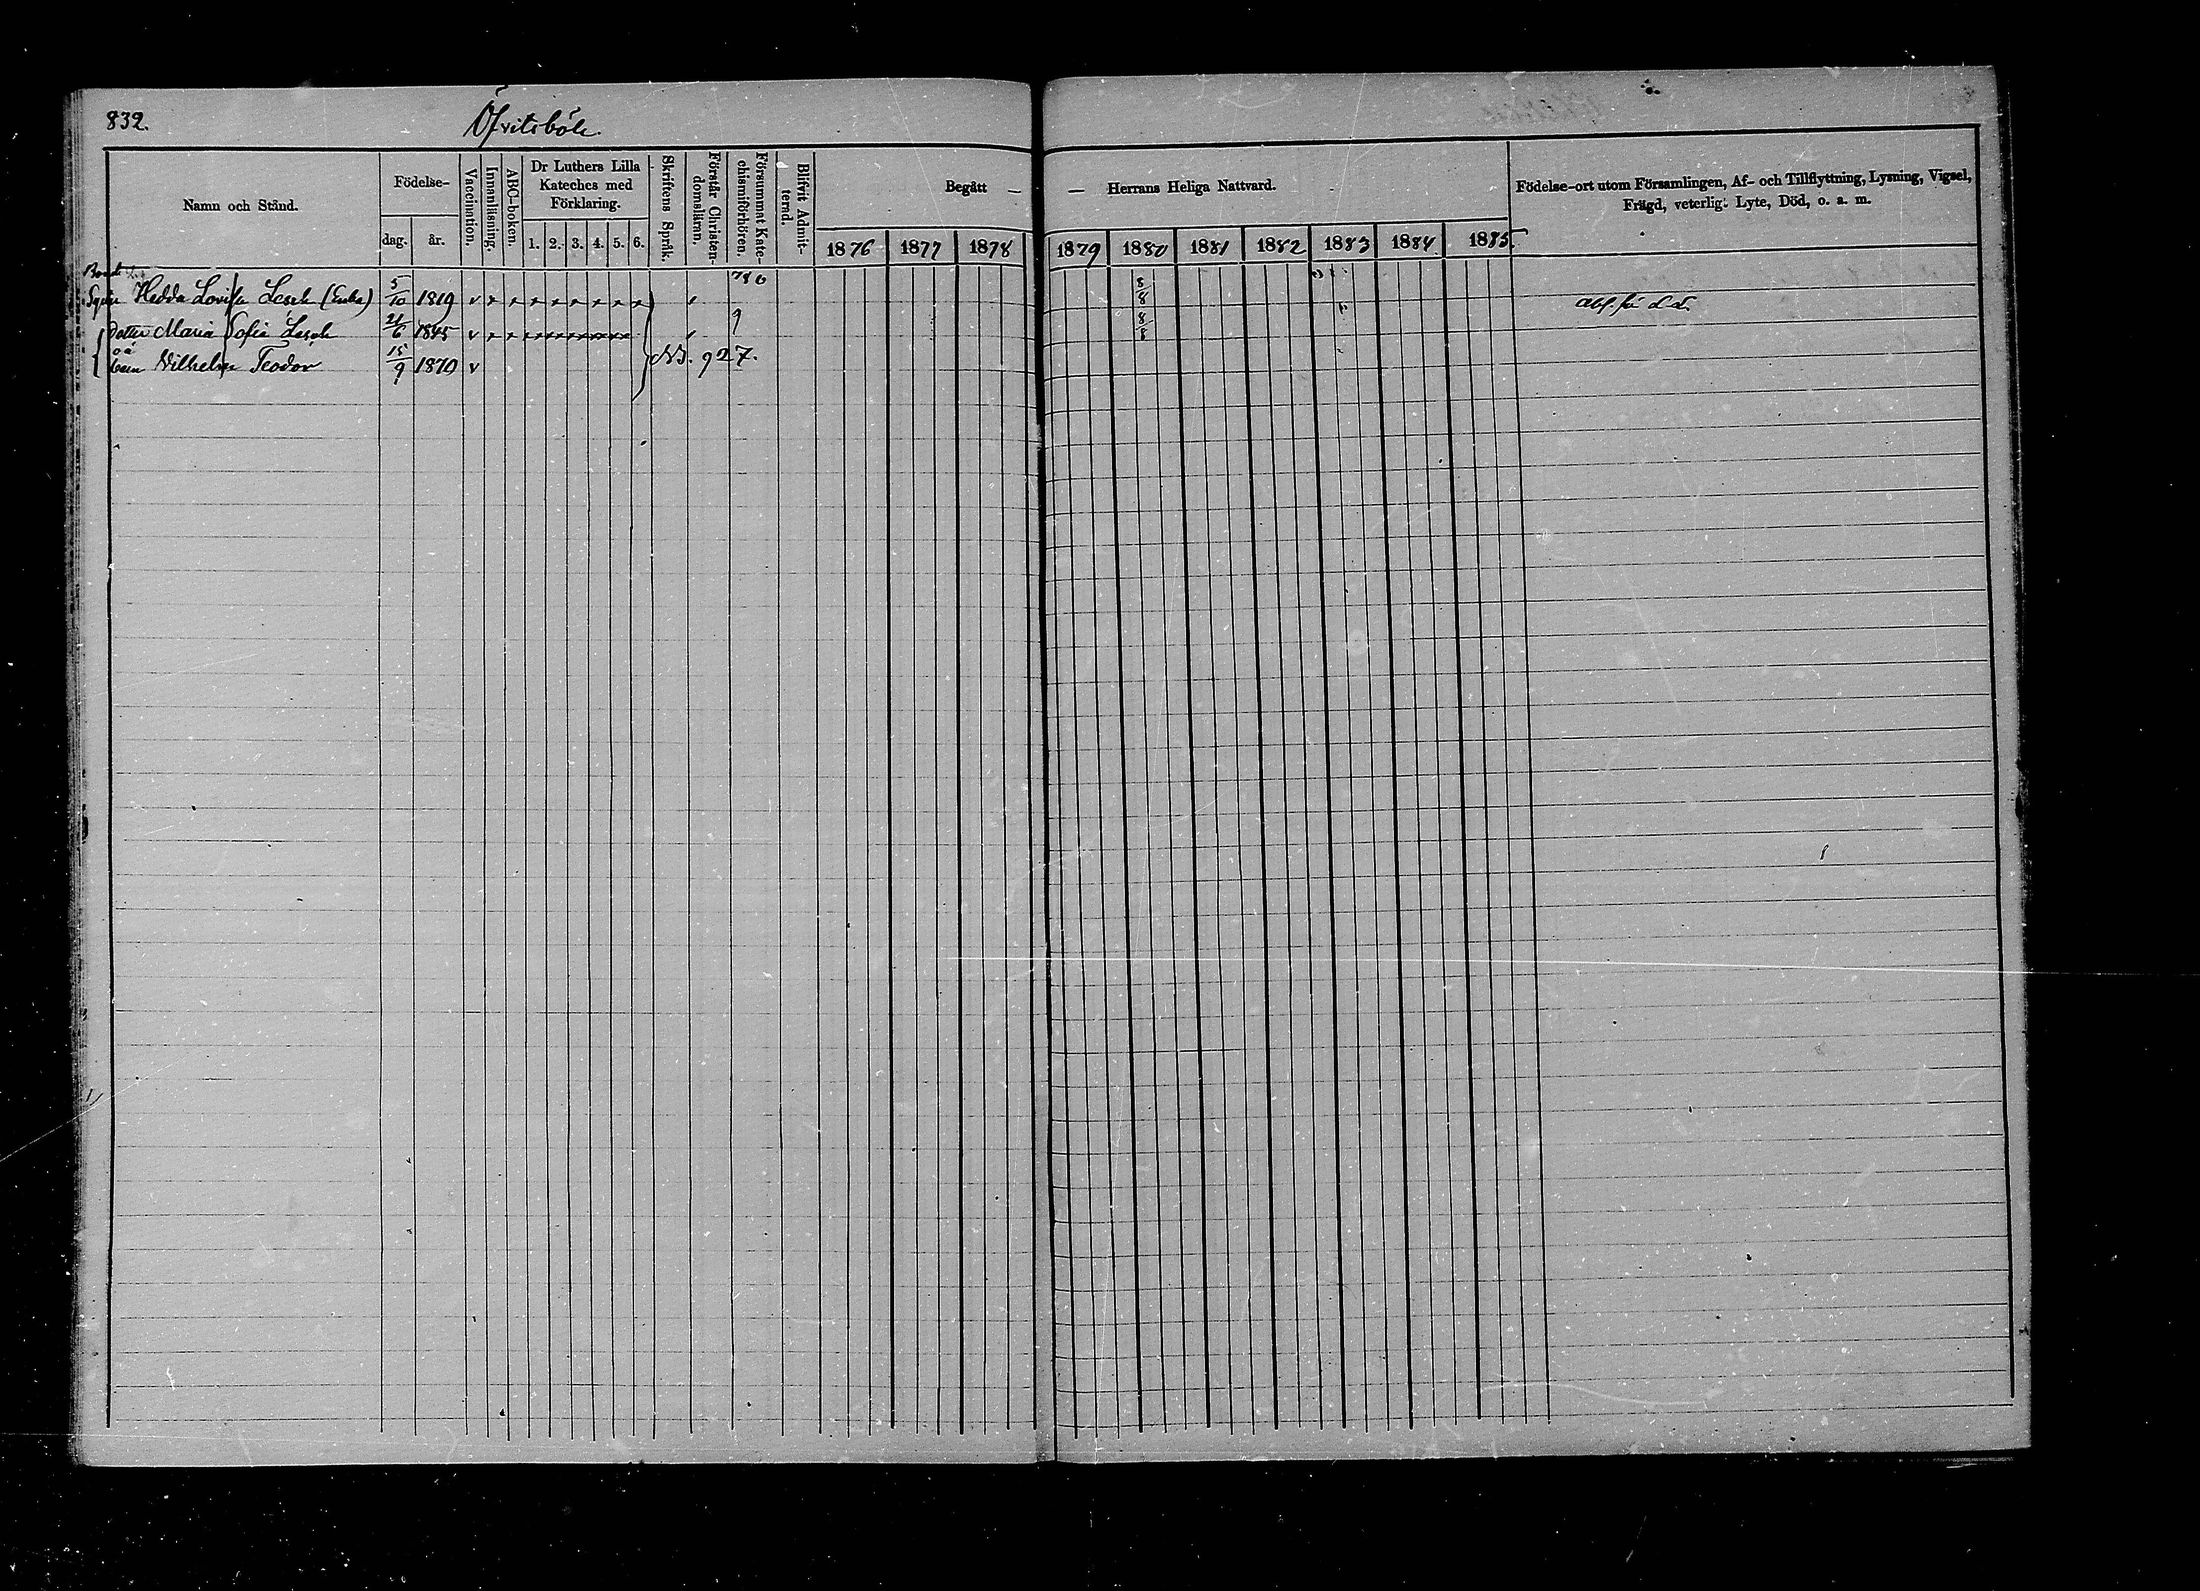 832.
Öfvitsböle.
Namn och Stånd.
Födelse-
dag.
år.
Vaccination.
Innanläsning.
ABC-boken.
Dr Luthers Lilla
Kateches med
Förklaring.
1. 2. 3. 4. 5. 6.
Skriftens Språk.
Förstår Christen-
domsläran.
Försummat Kate-
chismiförhören.
Blifvit Admit-
terad.
Begått —
— Herrans Heliga Nattvard.
1876 1877 1878
1879 1880 1881 1882 1883 1884 1885.
Födelse-ort utom Församlingen, Af- och Tillflyttning, Lysning, Vigsel,
Frägd, veterlig: Lyte, Död, o. a. m.
Hedda Lovisa Lesch (Enka) 5/10 1819 v 8/8
Dotter Maria Sofia Lesch 21/6 1845 v 9 8/8
oä
barn Vilhelm Teodor 15/9 1870 v NB. 927.